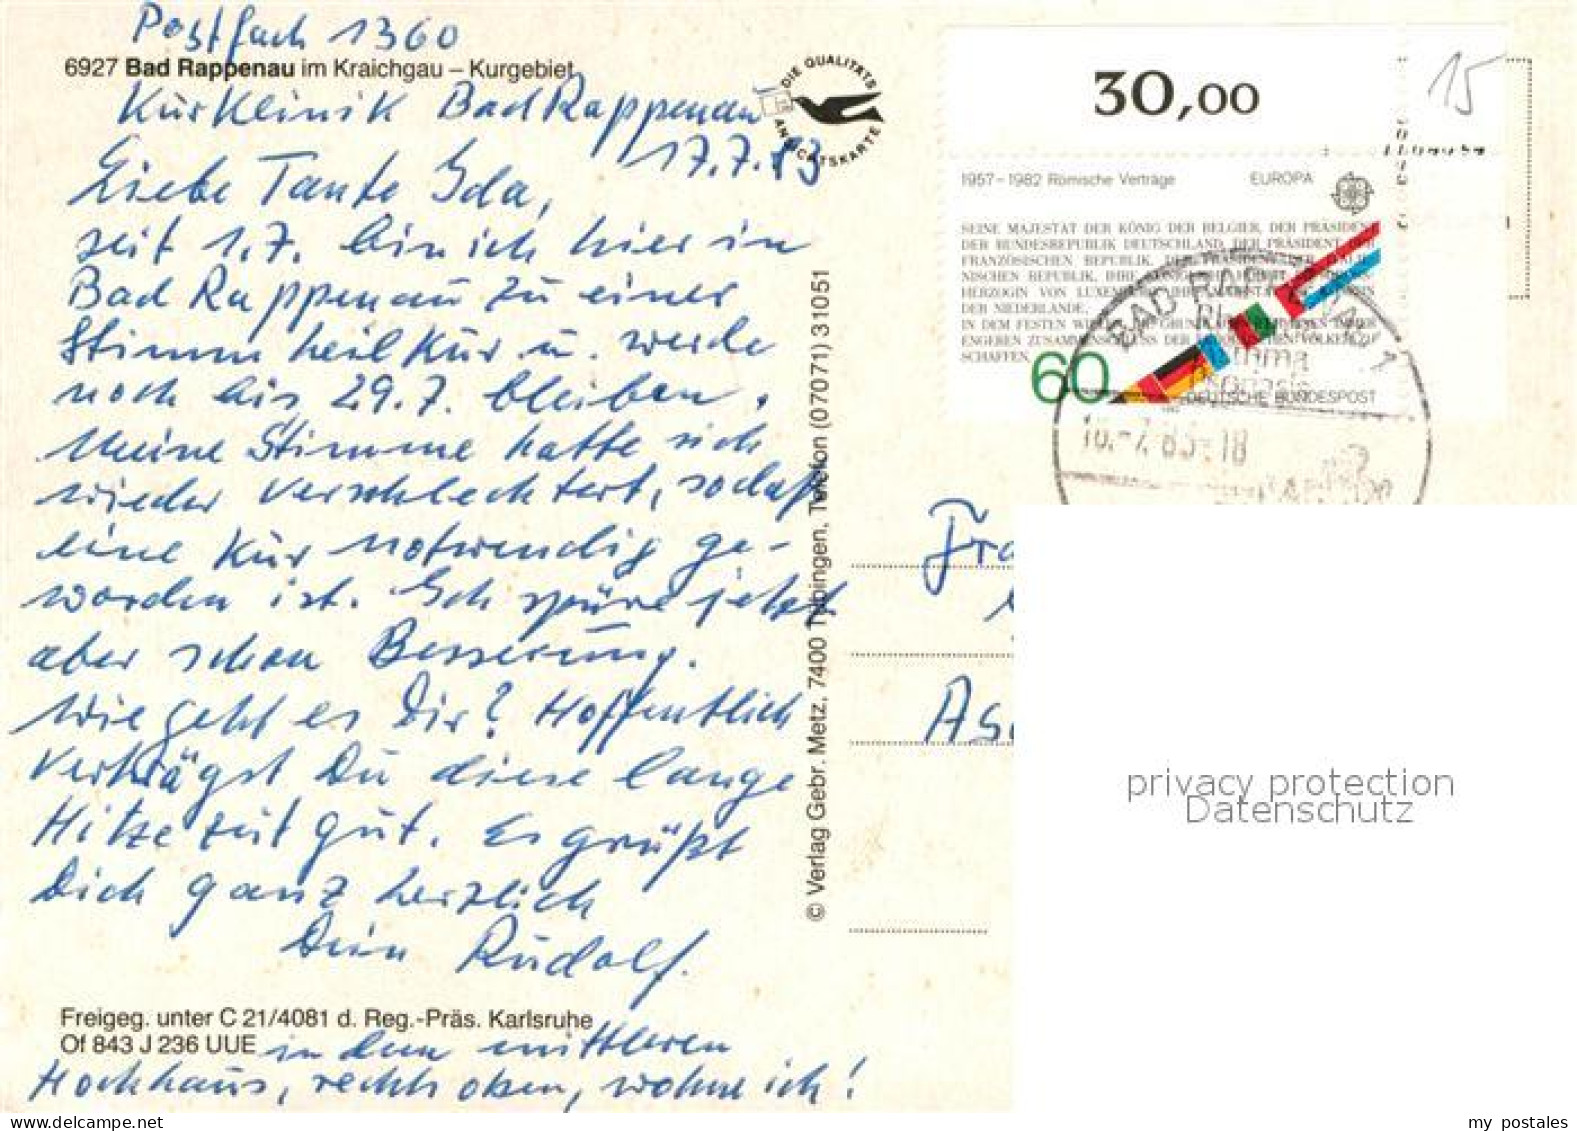 Postfach 1360
6927 Bad Rappenau im Kraichgau – Kurgebiet
Kurklinik Bad Rappenau
17.7.83
Liebe Tante Ida,
seit 1.7. bin ich hier in
Bad Rappenau zu einer
Stimmheilkur u. werde
noch bis 29.7. bleiben.
Meine Stimme hatte sich
wieder verschlechtert, sodaß
eine Kur notwendig ge-
worden ist. Ich spüre jetzt
aber schon Besserung.
Wie geht es Dir? Hoffentlich
verträgst Du diese lange
Hitzezeit gut. Es grüßt
Dich ganz herzlich
Dein Rudolf.
Freigeg. unter C 21/4081 d. Reg.-Präs. Karlsruhe
Of 843 J 236 UUE
in dem mittleren
Hochhaus, rechts oben, wohne ich!
DIE QUALITÄTS
ANSICHTSKARTE
© Verlag Gebr. Metz, 7400 Tübingen, Telefon (07071) 31051
30,00
15
1957–1982 Römische Verträge EUROPA
SEINE MAJESTÄT DER KÖNIG DER BELGIER, DER PRÄSIDENT
DER BUNDESREPUBLIK DEUTSCHLAND, DER PRÄSIDENT DER
FRANZÖSISCHEN REPUBLIK, DER PRÄSIDENT DER ITALIE-
NISCHEN REPUBLIK, IHRE KÖNIGLICHE HOHEIT DIE
HERZOGIN VON LUXEMBURG, IHRE MAJESTÄT DIE KÖNIGIN
DER NIEDERLANDE,
IN DEM FESTEN WILLEN, DIE GRUNDLAGEN FÜR EINEN IMMER
ENGEREN ZUSAMMENSCHLUSS DER EUROPÄISCHEN VÖLKER ZU
SCHAFFEN
60
DEUTSCHE BUNDESPOST
BAD RAPPENAU 1
18.-7.83-18
Fra
As
privacy protection
Datenschutz
my postales